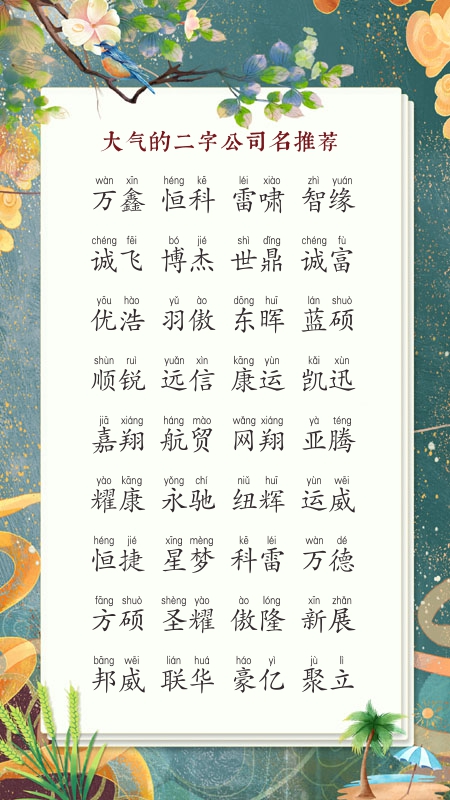 大气的二字公司名推荐
wàn xīn héng kē léi xiào zhì yuán
万鑫 恒科 雷啸 智缘
chéng fēi bó jié shì dǐng chéng fù
诚飞 博杰 世鼎 诚富
yōu hào yǔ ào dōng huī lán shuò
优浩 羽傲 东晖 蓝硕
shùn ruì yuǎn xìn kāng yùn kǎi xùn
顺锐 远信 康运 凯迅
jiā xiáng háng mào wǎng xiáng yà téng
嘉翔 航贸 网翔 亚腾
yào kāng yǒng chí niǔ huī yùn wēi
耀康 永驰 纽辉 运威
héng jié xīng mèng kē léi wàn dé
恒捷 星梦 科雷 万德
fāng shuò shèng yào ào lóng xīn zhǎn
方硕 圣耀 傲隆 新展
bāng wēi lián huá háo yì jù lì
邦威 联华 豪亿 聚立